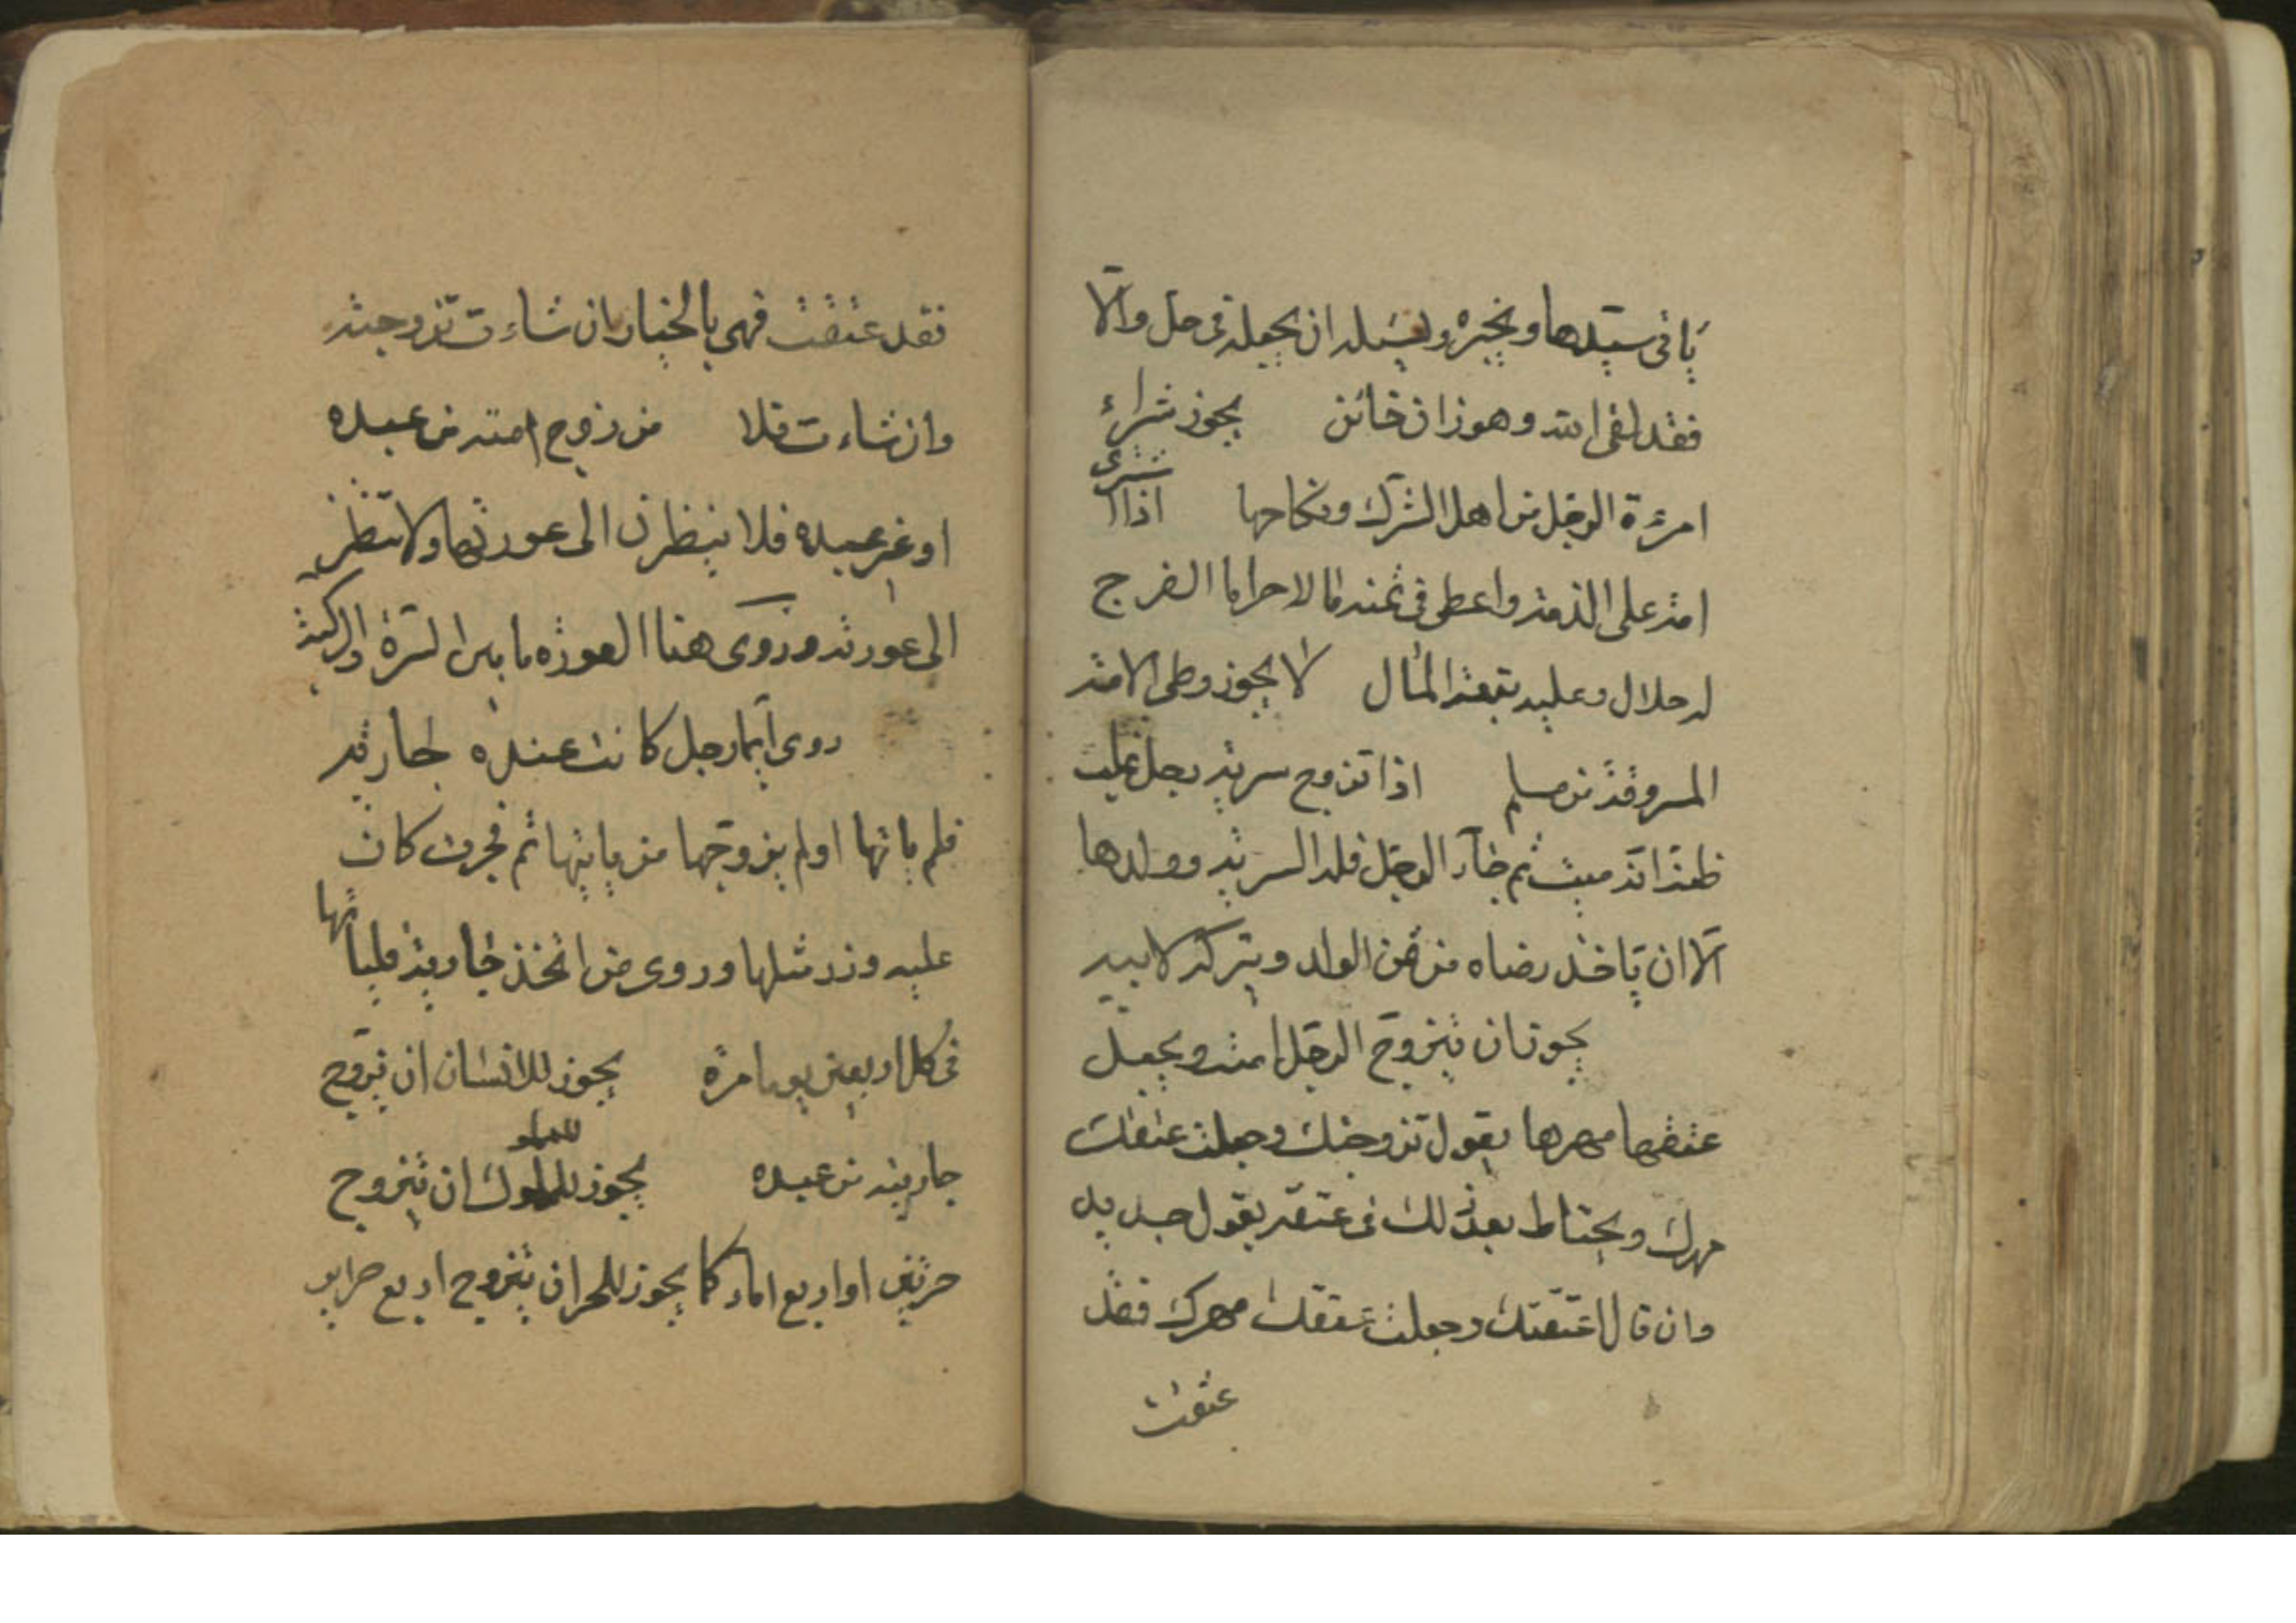 ياتى سيدها ويخبره ويسئله ان يجعله فى حل والّا
فقد لقى الله وهو زان خائن يجوز شراء
امرءة الرجل من اهل الشرك ونكاحها اذا اشترى
امة على الذمة واعطى فى ثمنه مالا حراما الفرج
له حلال وعليه تبعة المال لا يجوز وطى الامة
المسروقة من مسلم اذا تزوج سرية رجل غايب
ظنة انه ميت ثم جاء الرجل فله السرية وولدها
الّا ان ياخذ رضاه من ثمن الولد ويتركه لابيه
يجوز ان يتزوج الرجل امته ويجعل
عتقها مهرها يقول تزوجتك وجعلت عتقك
مهرك ويحتاط بعد ذلك فى عتقه يقول جديد
وان قال اعتقتك وجعلت عتقك مهرك فقد
عتقت
فقد عتقت فهى بالخيار ان شاءت تزوجته
وان شاءت فلا من زوج امته من عبده
او غير عبده فلا ينظرن الى عورتها ولا تنظر
الى عورته وروى هنا العورة ما بين السرة والركبة
روى ايما رجل كانت عنده جارية
فلم ياتها او لم يزوجها من ياتيها ثم فجرت كان
عليه وزر مثلها وروى من اتخذ جارية فلياتها
فى كل اربعين يوما مرة يجوز للانسان ان يزوج
جاريته من عبده يجوز للمملوك ان يتزوج
حرتين او اربع اماء كما يجوز للحر ان يتزوج اربع حراير